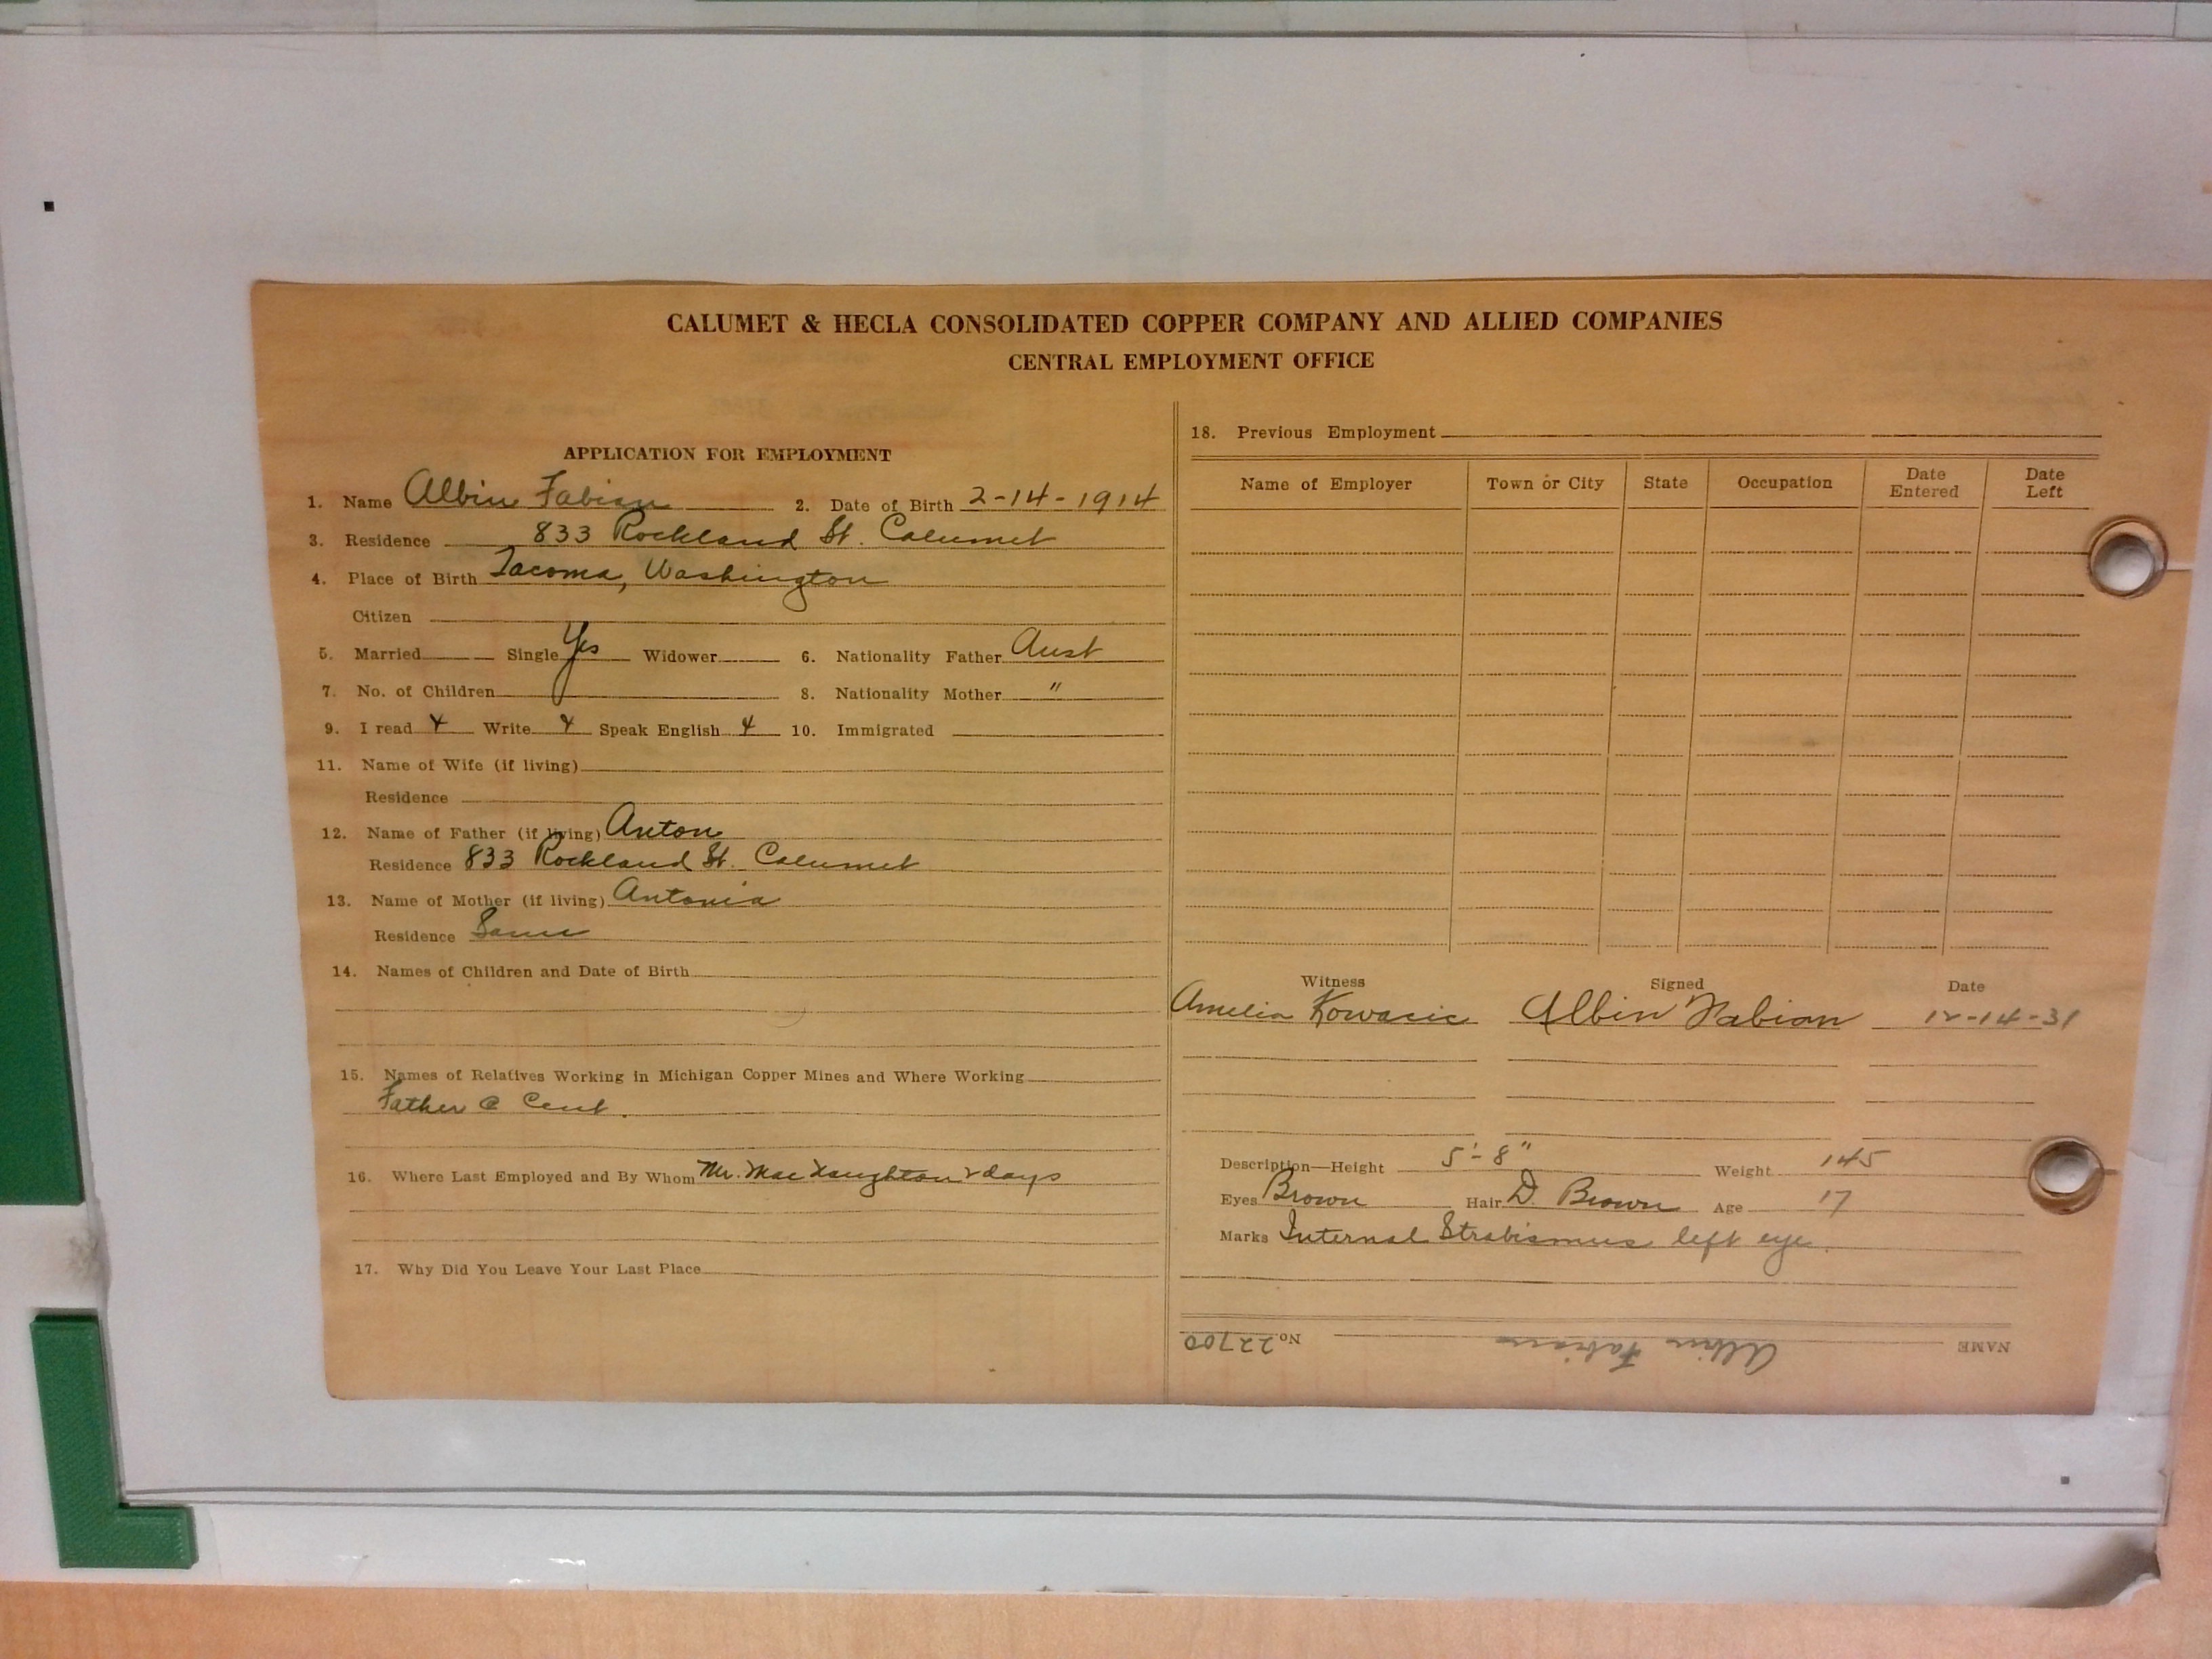 CALUMET & HECLA CONSOLIDATED COPPER COMPANY AND ALLIED COMPANIES
CENTRAL EMPLOYMENT OFFICE
APPLICATION FOR EMPLOYMENT
1. Name Albin Fabian 2. Date of Birth 2-14-1914
3. Residence 833 Rockland St. Calumet
4. Place of Birth Tacoma, Washington
Citizen
5. Married Single Yes Widower 6. Nationality Father Aust
7. No. of Children 8. Nationality Mother "
9. I read Y Write Y Speak English Y 10. Immigrated
11. Name of Wife (if living)
Residence
12. Name of Father (if living) Anton
Residence 833 Rockland St. Calumet
13. Name of Mother (if living) Antonia
Residence Same
14. Names of Children and Date of Birth
15. Names of Relatives Working in Michigan Copper Mines and Where Working
Father @ Cent.
16. Where Last Employed and By Whom Mr. MacNaughton 2 days
17. Why Did You Leave Your Last Place
18. Previous Employment
Name of Employer Town or City State Occupation Date Entered Date Left
Witness Signed Date
Amelia Kowacic Albin Fabian 12-14-31
Description—Height 5'-8" Weight 145
Eyes Brown Hair D. Brown Age 17
Marks Internal Strabismus left eye.
NAME Albin Fabian No. 22700